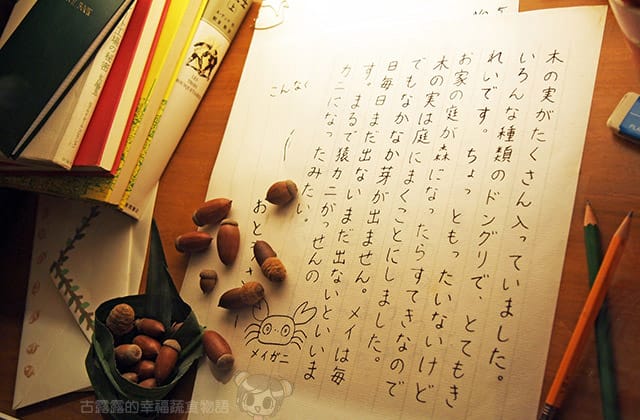 木の実がたくさん入っていました。
いろんな種類のドングリで、とてもき
れいです。ちょっともったいないけど
お家の庭が森になったらすてきなので
木の実は庭にまくことにしました。
でもなかなか芽が出ません。メイは毎
日毎日まだ出ないまだ出ないといいま
す。まるで猿カニがっせんの
カニになったみたい。
メイガニ
こんな
おと
の秘密
上
古露露的幸福蔬食物語